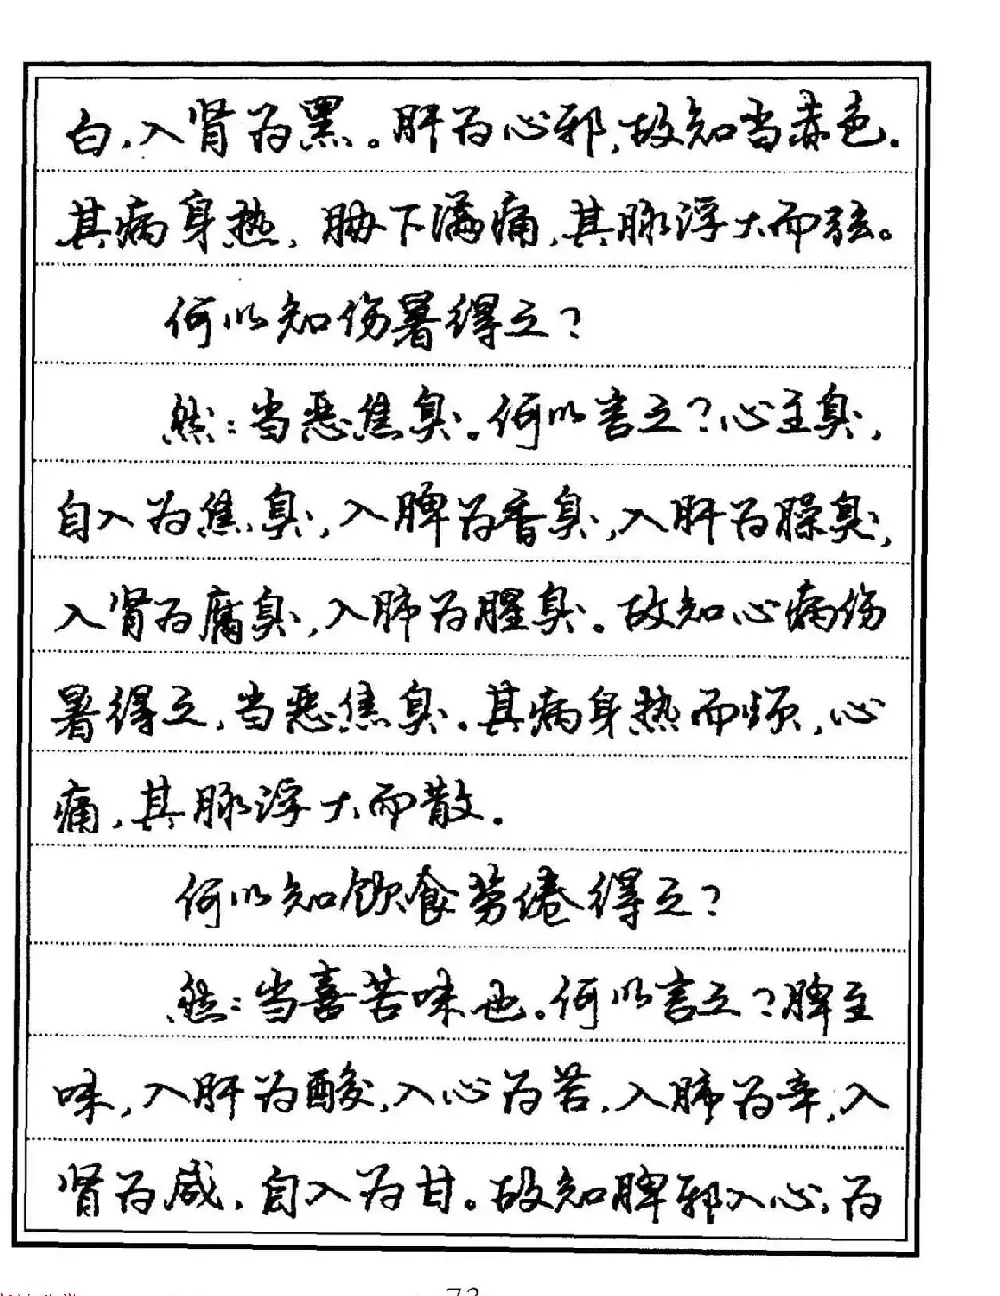 白，入肾为黑。肝为心邪，故知当赤色。
其病身热，胁下满痛，其脉浮大而弦。
何以知伤暑得之？
然：当恶焦臭。何以言之？心主臭，
自入为焦臭，入脾为香臭，入肝为臊臭，
入肾为腐臭，入肺为腥臭。故知心病伤
暑得之，当恶焦臭。其病身热而烦，心
痛，其脉浮大而散。
何以知饮食劳倦得之？
然：当喜苦味也。何以言之？脾主
味，入肝为酸，入心为苦，入肺为辛，入
肾为咸，自入为甘。故知脾邪入心，为